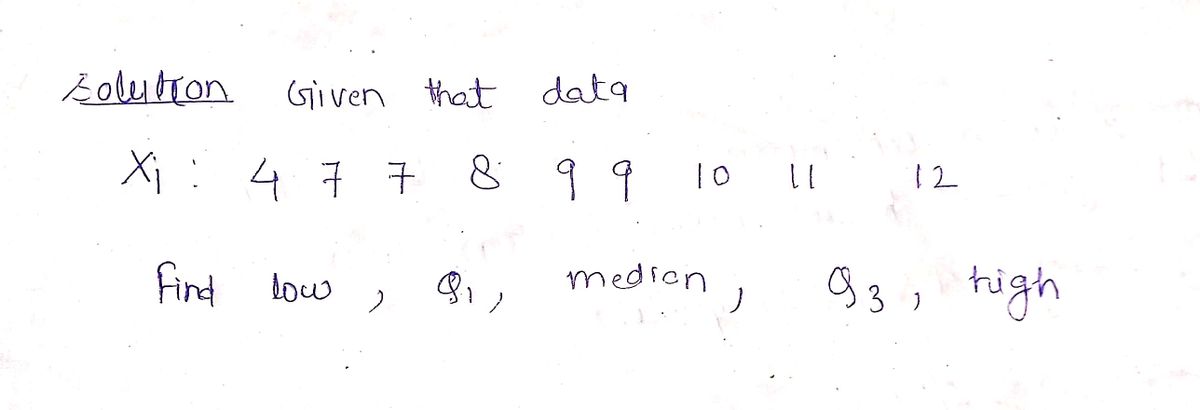 Solution Given that data
Xi : 4 7 7 8 9 9 10 11 12
Find low , Q1, median, Q3, high